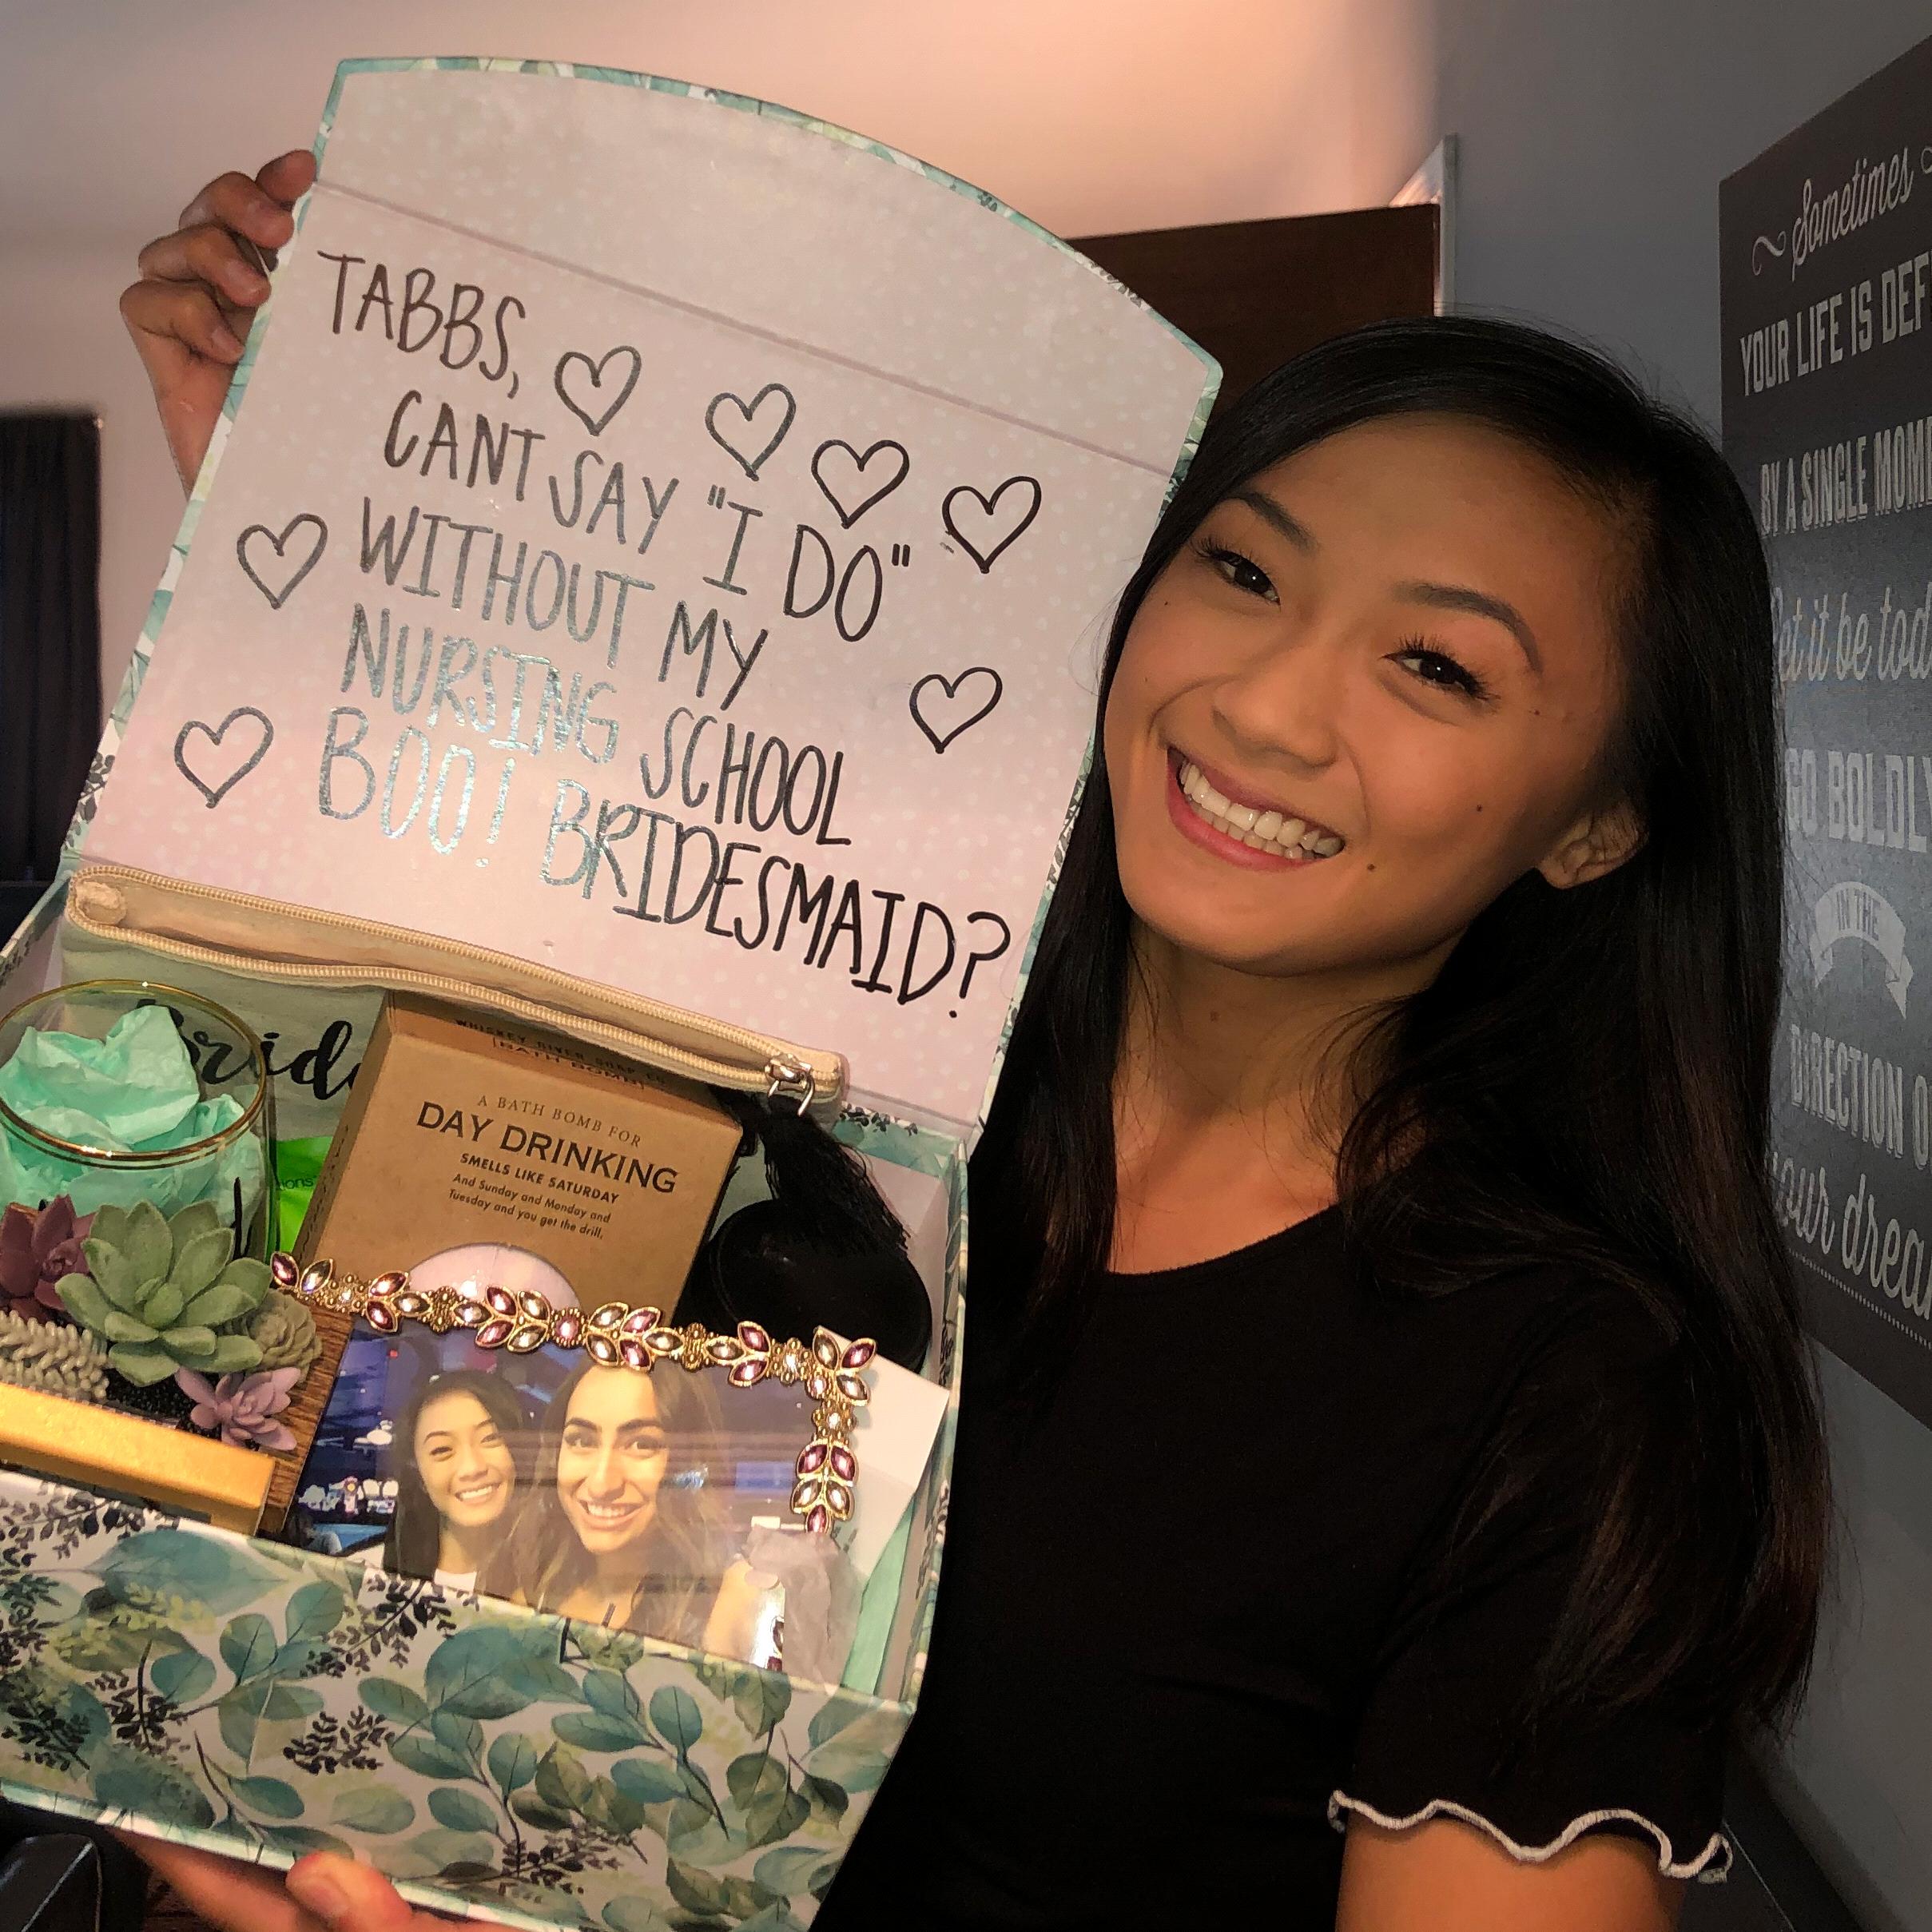 TABBS,
CANT SAY "I DO"
WITHOUT MY
NURSING SCHOOL
BOO! BRIDESMAID?
WHISKEY RIVER SOAP CO.
BATH BOMB
A BATH BOMB FOR
DAY DRINKING
SMELLS LIKE SATURDAY
And Sunday and Monday and
Tuesday and you get the drill.
Sometimes
YOUR LIFE IS
BY A SINGLE
let it be
GO BOLDLY
IN THE
DIRECTION
your